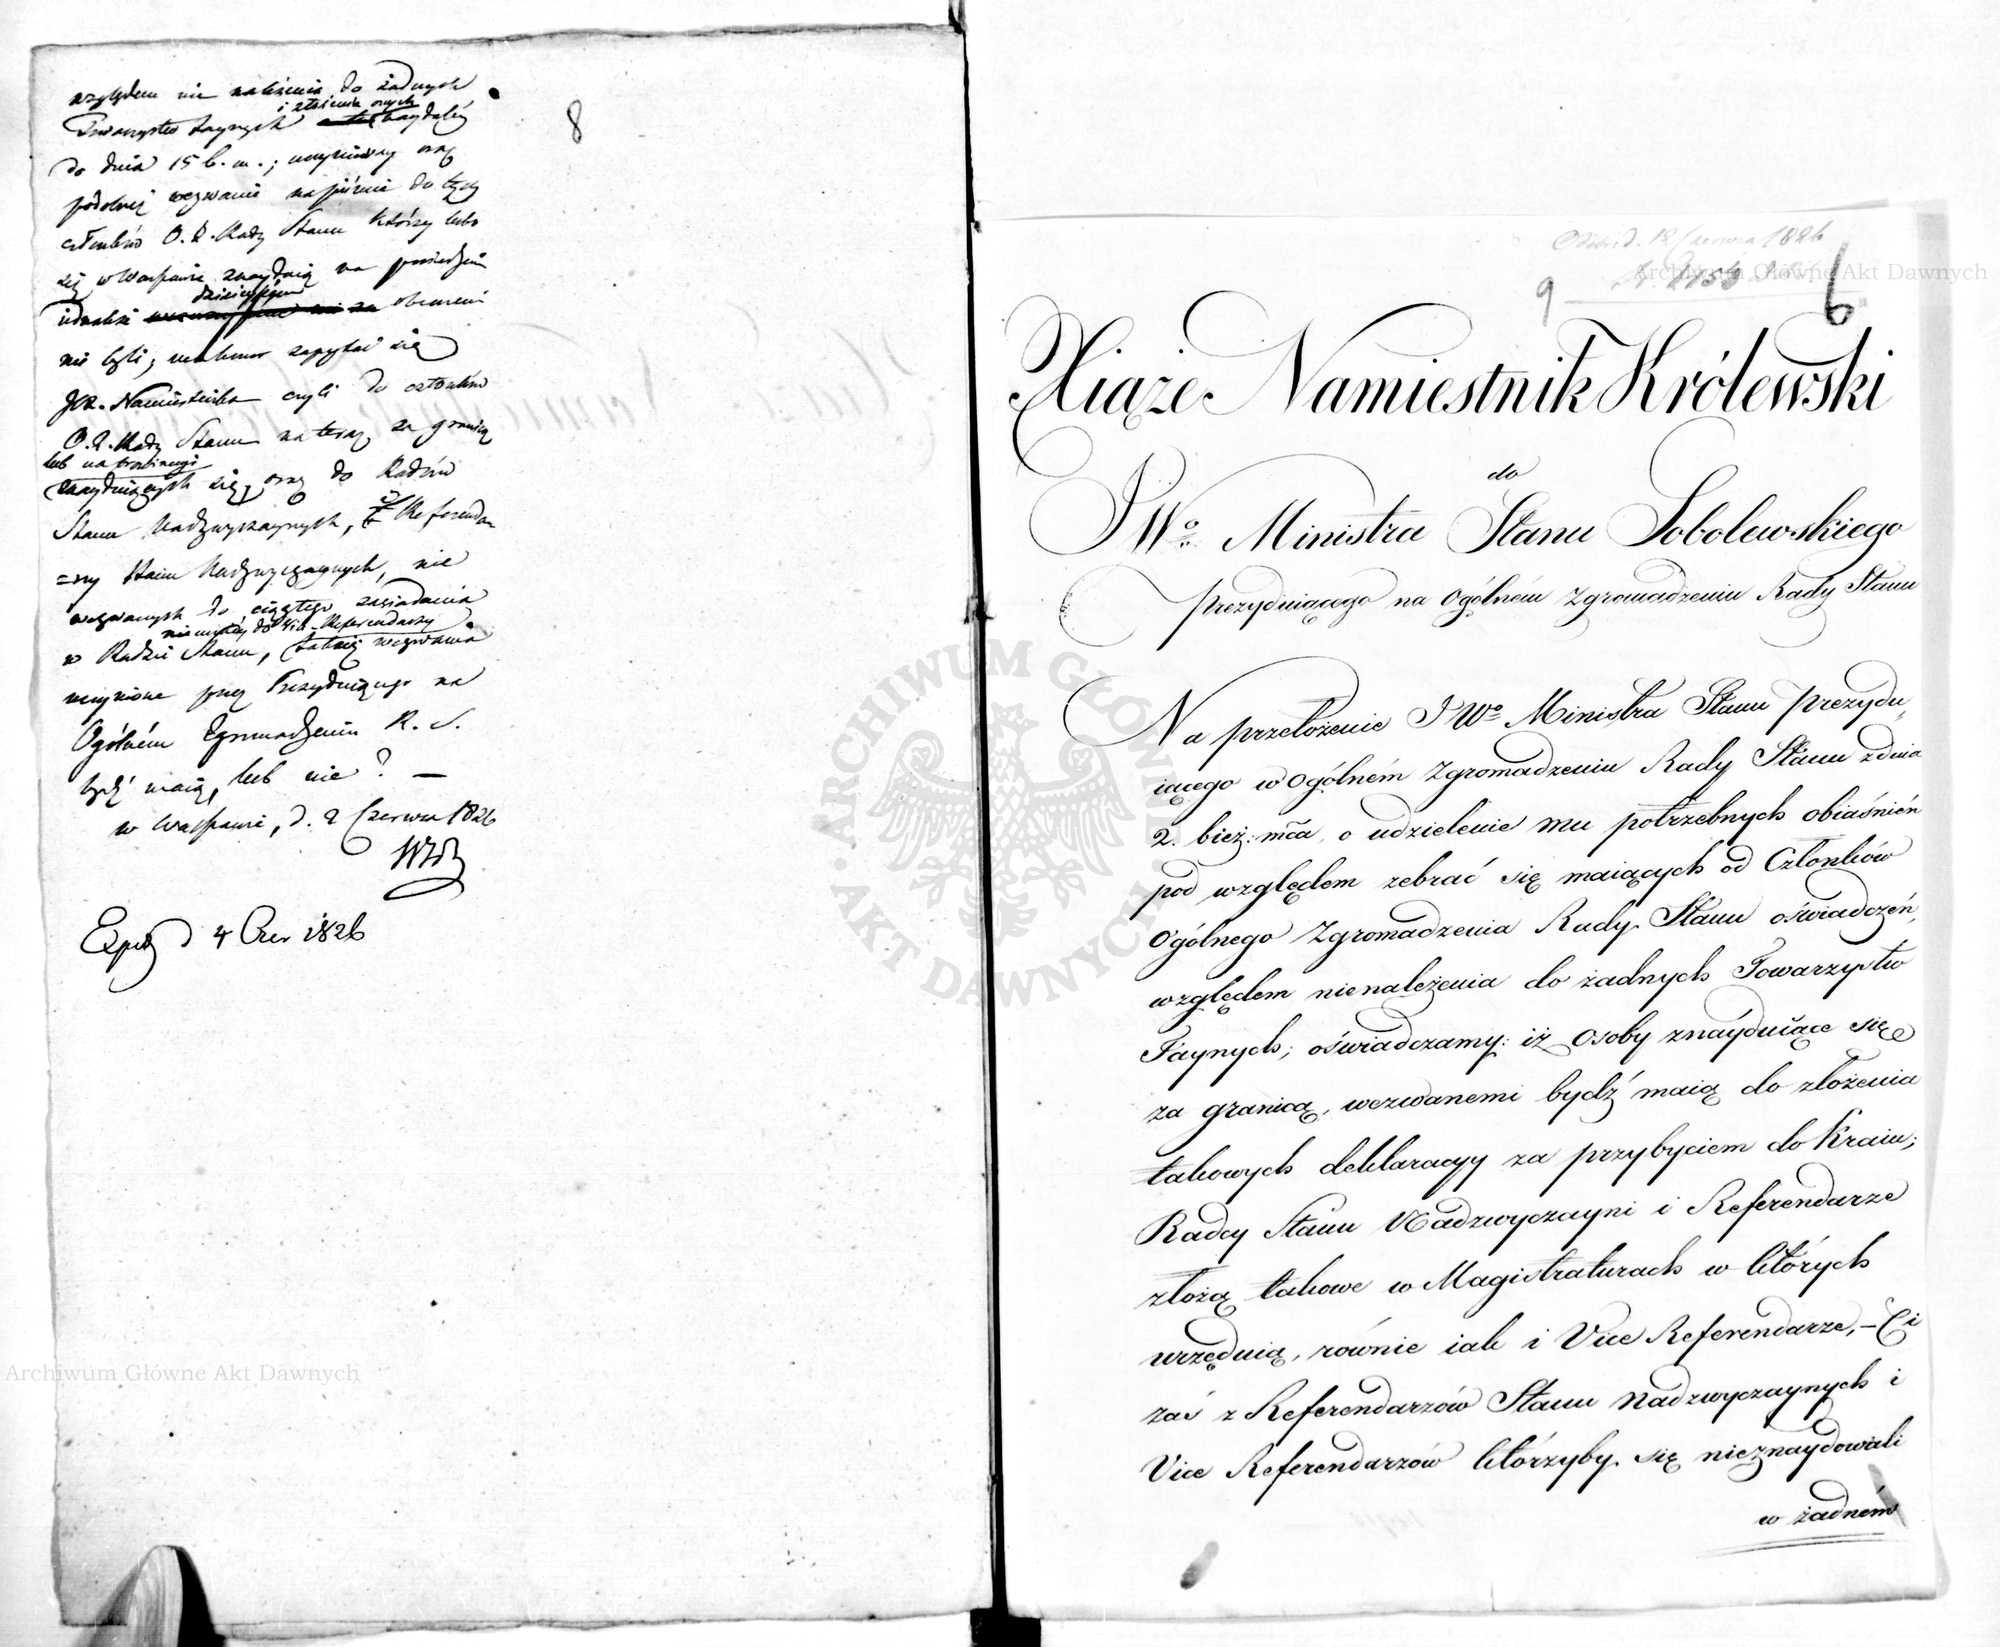 względem nie należenia do żadnych
i złożenia onych
Towarzystw taynych naydaléy
do dnia 15 b. m.; uczyniony oraz
podobnéj wezwanie na piśmie do tych
członków O. Z. Rady Stanu którzy lubo
się w Warszawie znayduią na posiedzeniu
dzisieyszém
iednakże obecnemi
nie byli; zapytać się
JOX. Namiestnika czyli do członków
O. Z. Rady Stanu na teraz za granicą
lub na prowincyi
znayduiących się, oraz do Radców
Stanu Nadzwyczaynych, i Referenda-
=rzy Stanu Nadzwyczaynych, nie
wezwanych do ciągłego zasiadania
niemniéy do Vice-Referendarzy
w Radzie Stanu, takież wezwania
uczynione przez Prezyduiącego na
Ogólném Zgromadzeniu R. S.
bydź maią, lub nie? —
w Warszawie, d. 2 Czerwca 1826
Exped d 4 Czer 1826
8
Odebr. d. 12 Czerwca 1826
9
6
Xiąże Namiestnik Królewski
do
JWo Ministra Stanu Sobolewskiego
Prezyduiącego na Ogólném Zgromadzeniu Rady Stanu
Na przełożenie JWo Ministra Stanu Prezydu„
iącego w Ogólném Zgromadzeniu Rady Stanu z dnia
2. bież: mca, o udzielenie mu potrzebnych obiaśnień
pod względem zebrać się maiących od Członków
Ogólnego Zgromadzenia Rady Stanu oświadczeń,
względem nienależenia do żadnych Towarzystw
Taynych; oświadczamy: iż osoby znayduiące się
za granicą, wezwanemi bydź maią do złożenia
takowych deklaracyy za przybyciem do Kraiu;
Radcy Stanu Nadzwyczayni i Referendarze
złożą takowe w Magistraturach w których
urzęduią, równie iak i Vice Referendarze, – Ci
zaś z Referendarzów Stanu Nadzwyczaynych i
Vice Referendarzów którzyby się nieznaydowali
w żadném
Archiwum Główne Akt Dawnych
Archiwum Główne Akt Dawnych
ARCHIWUM GŁÓWNE AKT DAWNYCH